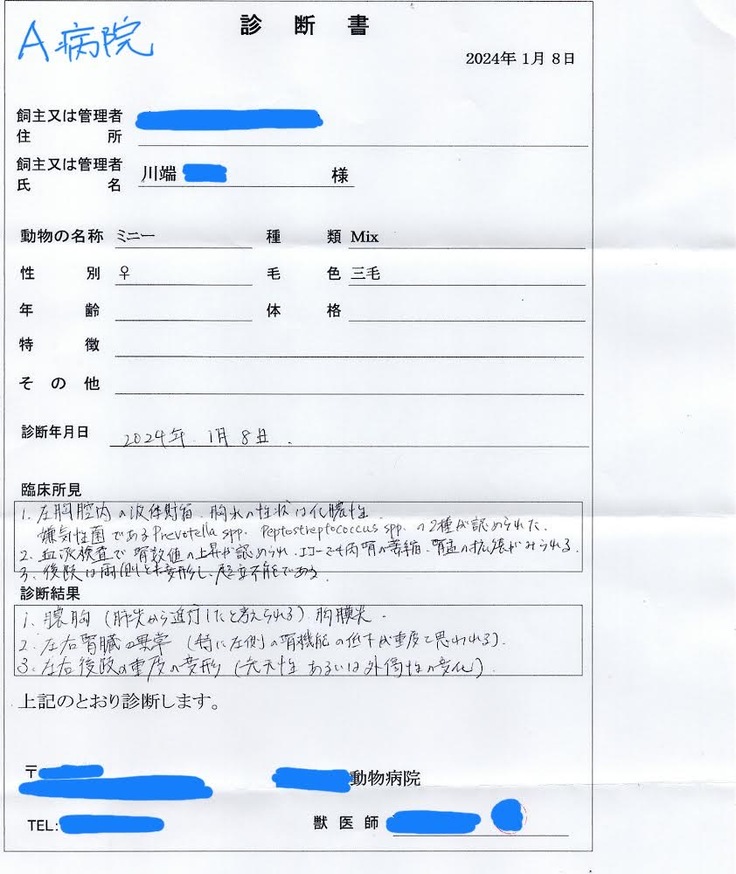 A病院
診断書
2024年1月8日
飼主又は管理者
住所
飼主又は管理者
氏名 川端 様
動物の名称 ミニー 種類 Mix
性別 ♀ 毛色 三毛
年齢 体格
特徴
その他
診断年月日 2024年 1月 8日.
臨床所見
1. 左胸腔内の液体貯留. 胸水の性状は化膿性.
嫌気性菌であるPrevotella spp. Peptostreptococcus spp. の2種が認められた.
2. 血液検査で腎数値の上昇が認められ、エコーでも両腎の萎縮、腎盂の拡張がみられる.
3. 後肢は両側とも変形し、起立不能である.
診断結果
1. 膿胸 (肺炎から進行したと考えられる) 胸膜炎.
2. 左右腎臓の異常 (特に左側の腎機能の低下が重度と思われる).
3. 左右後肢の重度の変形 (先天性 あるいは外傷性の変化).
上記のとおり診断します。
〒
動物病院
TEL:
獣医師